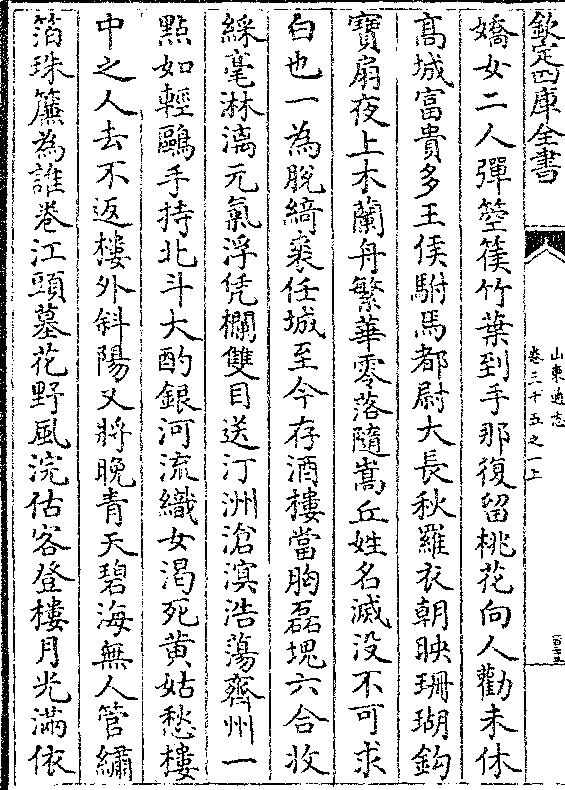 欽定四庫全書
山東通志
卷三十五之一上
嬌女二人彈箜篌竹葉到手那復留桃花向人勸未休
高城富貴多王侯駙馬都尉大長秋羅衣朝映珊瑚鈎
寶扇夜上木蘭舟繁華零落隨嵩丘姓名滅没不可求
白也一為脱綺裘任城至今存酒樓當胸磊塊六合收
綵毫淋漓元氣浮凭欄雙目送汀洲滄溟浩蕩齊州一
點如輕鷗手持北斗大酌銀河流織女渴死黄姑愁樓
中之人去不返樓外斜陽又將晚青天碧海無人管繡
箔珠簾為誰卷江頭墓花野風浣估客登樓月光滿依